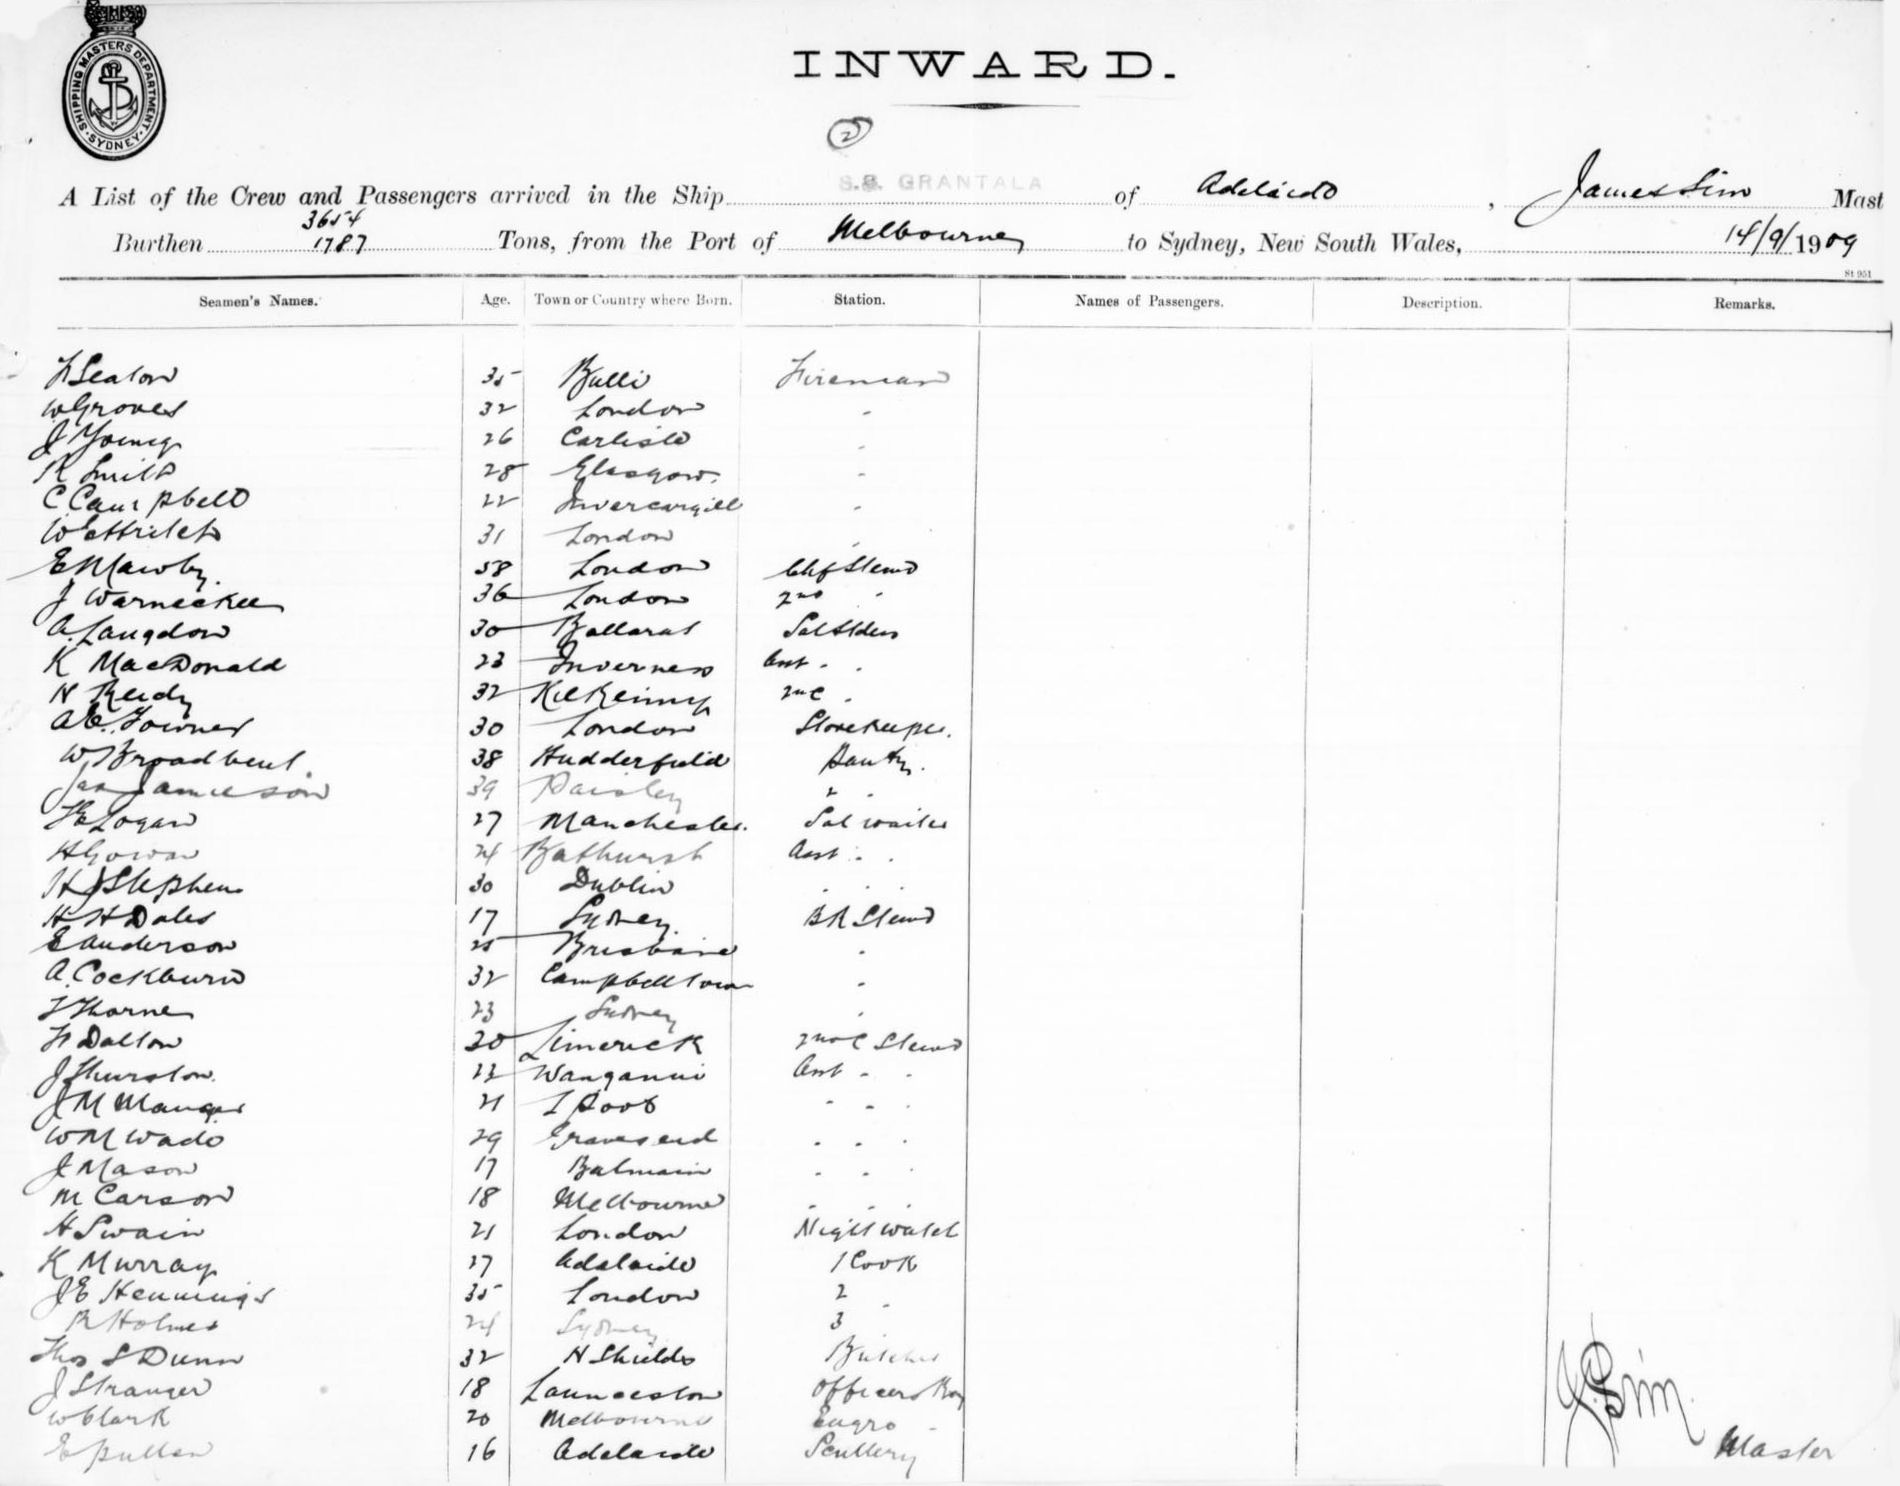 SHIPPING MASTERS DEPARTMENT
SYDNEY
INWARD.
2
A List of the Crew and Passengers arrived in the Ship S.S. GRANTALA of Adelaide, James Sim Mast
Burthen 3654 1787 Tons, from the Port of Melbourne to Sydney, New South Wales, 14/9/1909
St 951
Seamen's Names. Age. Town or Country where Born. Station. Names of Passengers. Description. Remarks.
35 Bulli Fireman
W Groves 32 London "
J Young 26 Carlisle "
R Smith 28 Glasgow "
C Campbell 22 Invercargill "
31 London "
E Mawby 58 London Chf Stewd
J Warneckee 36 London 2nd "
A. Langdon 30 Ballarat
K MacDonald 23 Inverness Asst " "
N Reidy 32 Kilkenny 2nd C "
30 London Storekeeper.
W Broadbent 38 Hudderfield Pantry.
Jas Jamieson 39 Paisley 2 "
Logan 27 Manchester. Sal waiter
H Gowan 24 Bathurst Asst " "
H J Stephens 30 Dublin " "
H H Dales 17 Sydney. B R Stewd
E Anderson 25 Brisbane "
A. Cockburn 32 Campbelltown "
Thorne 23 Sydney "
Dalton 30 Limerick 2nd C Stewd
J Thurston. 22 Wanganui Asst " "
J M Manger 21 L Pool " " "
W M Wade 29 Gravesend " " "
J Mason 17 Balmain " " "
M Carson 18 Melbourne " " "
H Swain 21 London Night watch
K Murray 27 Adelaide 1 Cook
J E Hennings 35 London 2 "
R Holmes 24 Sydney 3
Thos S Dunn 32 N Shields Butcher
J Stranger 18 Launceston Officers Boy
W Clark 20 Melbourne Engrs "
E Pullen 16 Adelaide Scullery
J. Sim.
Master